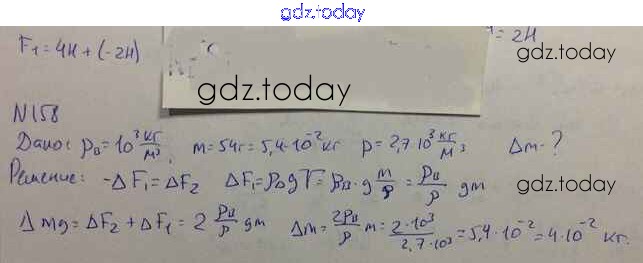 gdz.today
F₁ = 4H + (-2H) = 2H
gdz.today
gdz.today
N158
Дано: ρв = 10³ кг/м³, m = 54г = 5,4·10⁻² кг ρ = 2,7·10³ кг/м³ Δm - ?
Решение: -ΔF₁ = ΔF₂ ΔF₁ = ρвgV = ρв·g m/ρ = ρв/ρ gm
gdz.today
Δmg = ΔF₂ + ΔF₁ = 2 ρв/ρ gm Δm = 2ρв/ρ m = 2·10³/2,7·10³ = 5,4·10⁻² = 4·10⁻² кг.